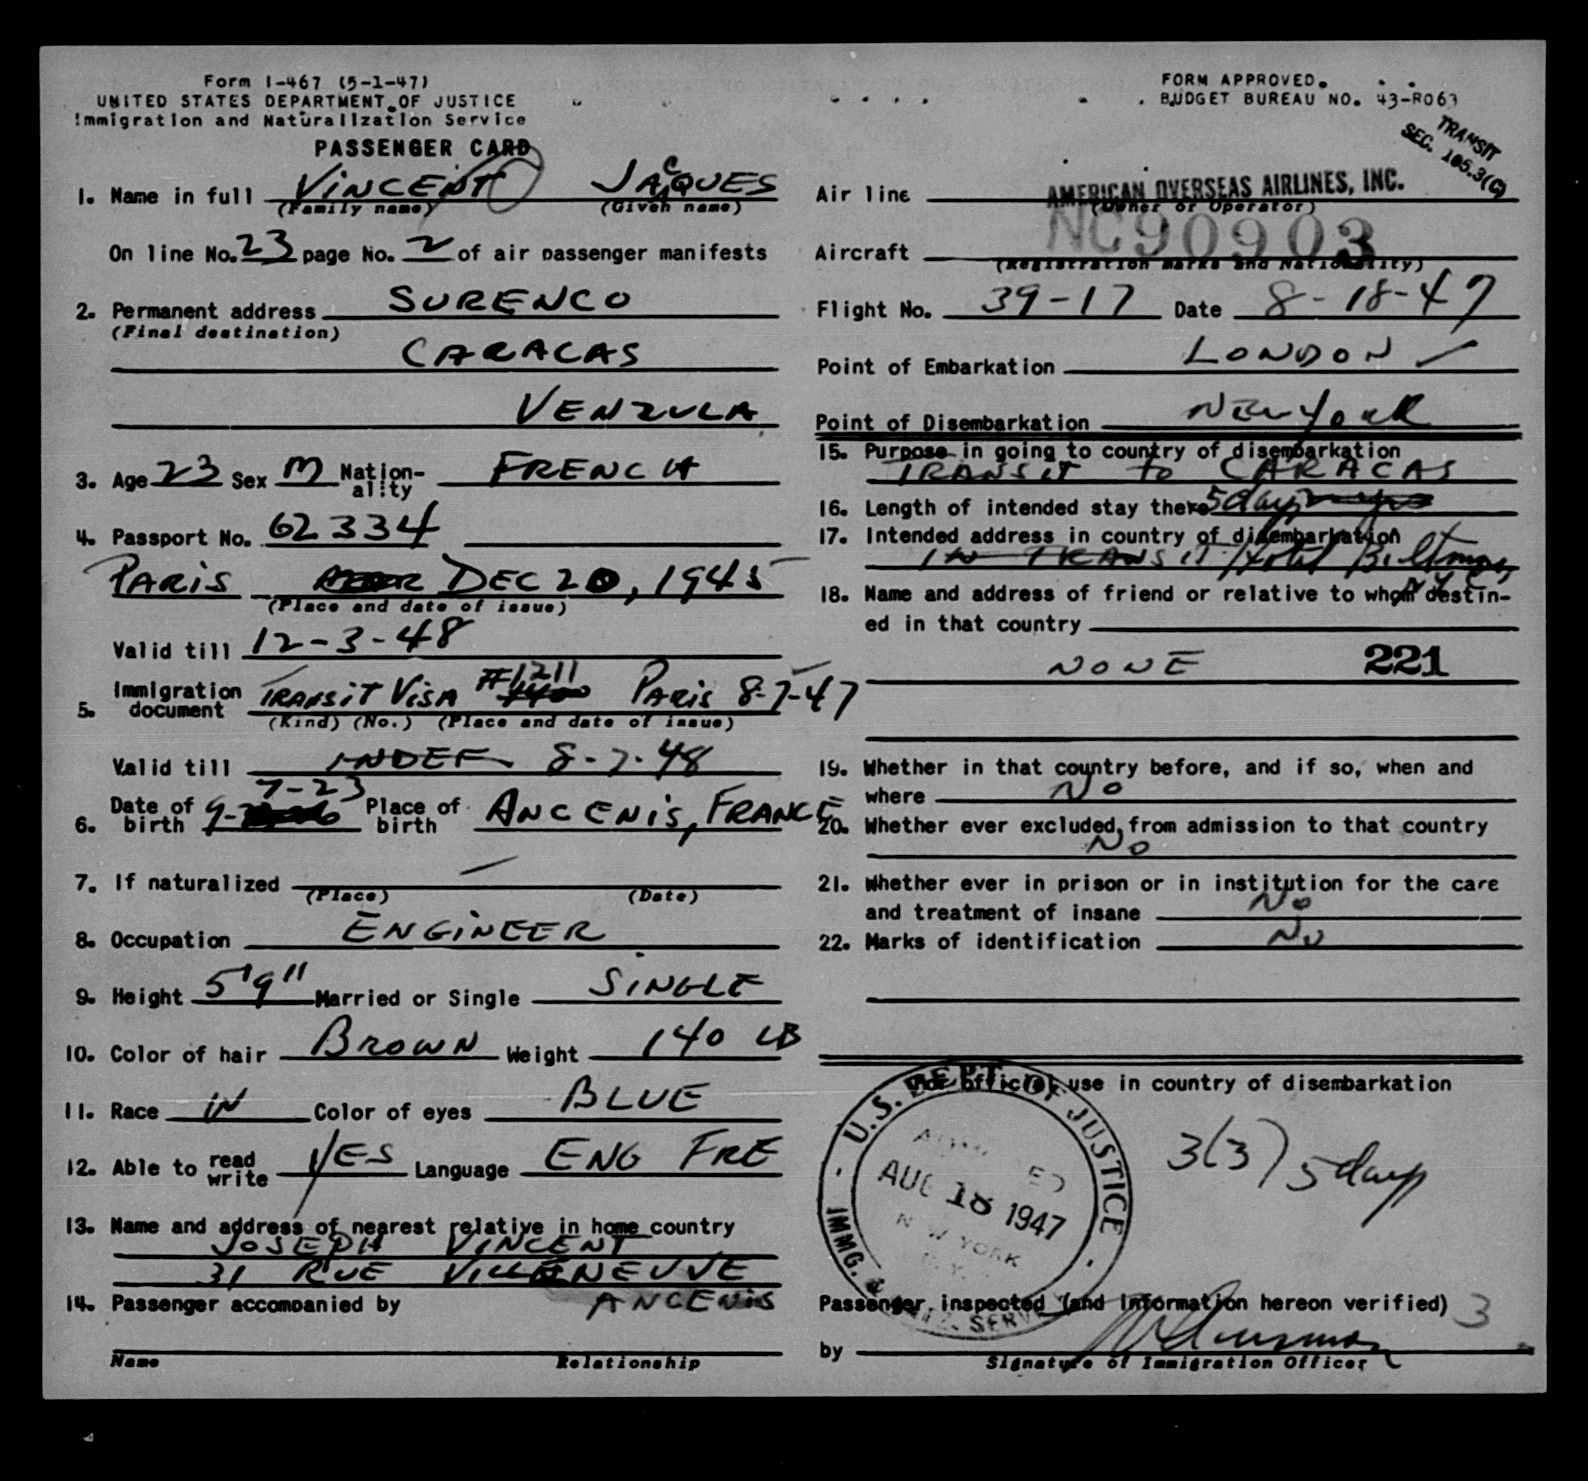 Form I-467 (5-1-47)
UNITED STATES DEPARTMENT OF JUSTICE
Immigration and Naturalization Service
PASSENGER CARD
1. Name in full VINCENT JACQUES
(Family name) (Given name)
On line No. 23 page No. 2 of air passenger manifests
2. Permanent address SURENCO
(Final destination)
CARACAS
VENZULA
3. Age 23 Sex M Nation-ality FRENCH
4. Passport No. 62334
PARIS DEC 20, 1945
(Place and date of issue)
Valid till 12-3-48
5. Immigration document TRANSIT VISA #1211 PARIS 8-7-47
(Kind) (No.) (Place and date of issue)
Valid till INDEF 8-7-48
7-23
6. Date of birth 9- Place of birth ANCENIS, FRANCE
7. If naturalized —
(Place) (Date)
8. Occupation ENGINEER
9. Height 5'9" Married or Single SINGLE
10. Color of hair BROWN Weight 140 LB
11. Race Color of eyes BLUE
12. Able to read write YES Language ENG FRE
13. Name and address of nearest relative in home country
JOSEPH VINCENT
31 RUE VILLENEUVE
14. Passenger accompanied by ANCENIS
Name Relationship
FORM APPROVED.
BUDGET BUREAU NO. 43-R063
TRANSIT
SEC. 105.3(C)
Air line AMERICAN OVERSEAS AIRLINES, INC.
(Owner or Operator)
Aircraft NC90903
(Registration marks and Nationality)
Flight No. 39-17 Date 8-18-47
Point of Embarkation LONDON
Point of Disembarkation NEW YORK
15. Purpose in going to country of disembarkation
TRANSIT TO CARACAS
16. Length of intended stay there 5 days
17. Intended address in country of disembarkation
IN TRANSIT Hotel Biltmore, NYC
18. Name and address of friend or relative to whom destin-
ed in that country
NONE 221
19. Whether in that country before, and if so, when and
where NO
20. Whether ever excluded from admission to that country
NO
21. Whether ever in prison or in institution for the care
and treatment of insane No
22. Marks of identification No
For official use in country of disembarkation
U.S. DEPT. OF JUSTICE
ADMITTED
AUG 18 1947
NEW YORK
IMMG. & NATZ. SERV.
3(3) 5 days
Passenger inspected (and information hereon verified) 3
by
Signature of Immigration Officer